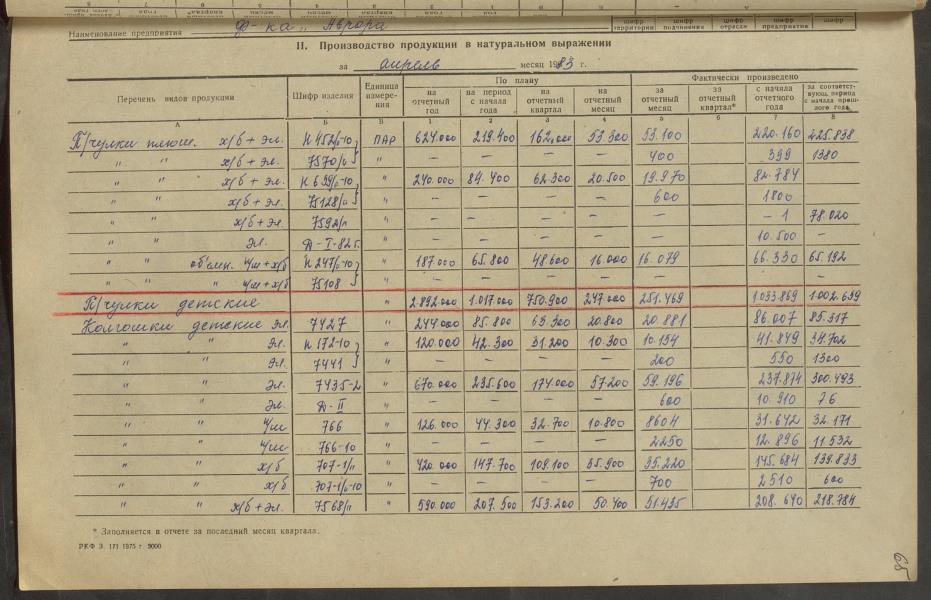 Наименование предприятия ф-ка „Аврора
шифр территории шифр подчинения шифр отрасли шифр предприятия шифр
II. Производство продукции в натуральном выражении
за апрель месяц 1983 г.
Перечень видов продукции Шифр изделия Единица измерения По плану Фактически произведено
на отчетный год на период с начала года на отчетный квартал на отчетный месяц за отчетный месяц за отчетный квартал* с начала отчетного года за соответствующ. период с начала прошлого года
А Б В 1 2 3 4 5 6 7 8
П/чулки плюш. х/б + эл. ПАР 624.000 219.400 162.000 53.300 53.100 220.160 425.838
" " х/б + эл. " — — — — 400 399 1380
" " х/б + эл. " 240.000 84.400 62.300 20.500 19.970 82.784
" " х/б + эл. 75128/п " — — — — 600 1800
" " х/б + эл. 7592/п " — — — — — — 1 78.020
" " эл. Д-I-82г. " — — — — — 10.500 —
" " Н 247/п-10 " 187.000 65.800 48.600 16.000 16.079 66.330 65.192
" " ч/ш + х/б 75108 " — — — — — — —
П/чулки детские " 2.892.000 1.017.000 750.900 247.000 251.469 1.033.869 1.002.639
Колготки детские эл. 7427 " 244.000 85.800 63.300 20.800 20.881 86.007 85.317
" " эл. Н 172-10 " 120.000 42.300 31.200 10.300 10.154 41.849 34.702
" " эл. 7441 " — — — — 200 550 1300
" " эл. 7435-2 " 670.000 235.600 174.000 57.200 59.196 237.874 300.493
" " эл. Д-II " — — — — 600 10.910 76
" " ч/ш 766 " 126.000 44.300 32.700 10.800 8604 31.642 32.171
" " ч/ш 766-10 " — — — — 2250 12.896 11.532
" " х/б 707-1/п " 420.000 147.700 109.100 35.900 35.220 145.684 139.833
" " х/б 707-1/п-10 " — — — — 700 2510 600
" " х/б + эл. 7568/п " 590.000 207.500 153.200 50.400 51.435 208.640 218.784
* Заполняется в отчете за последний месяц квартала.
РКФ З. 171 1975 г. 9000